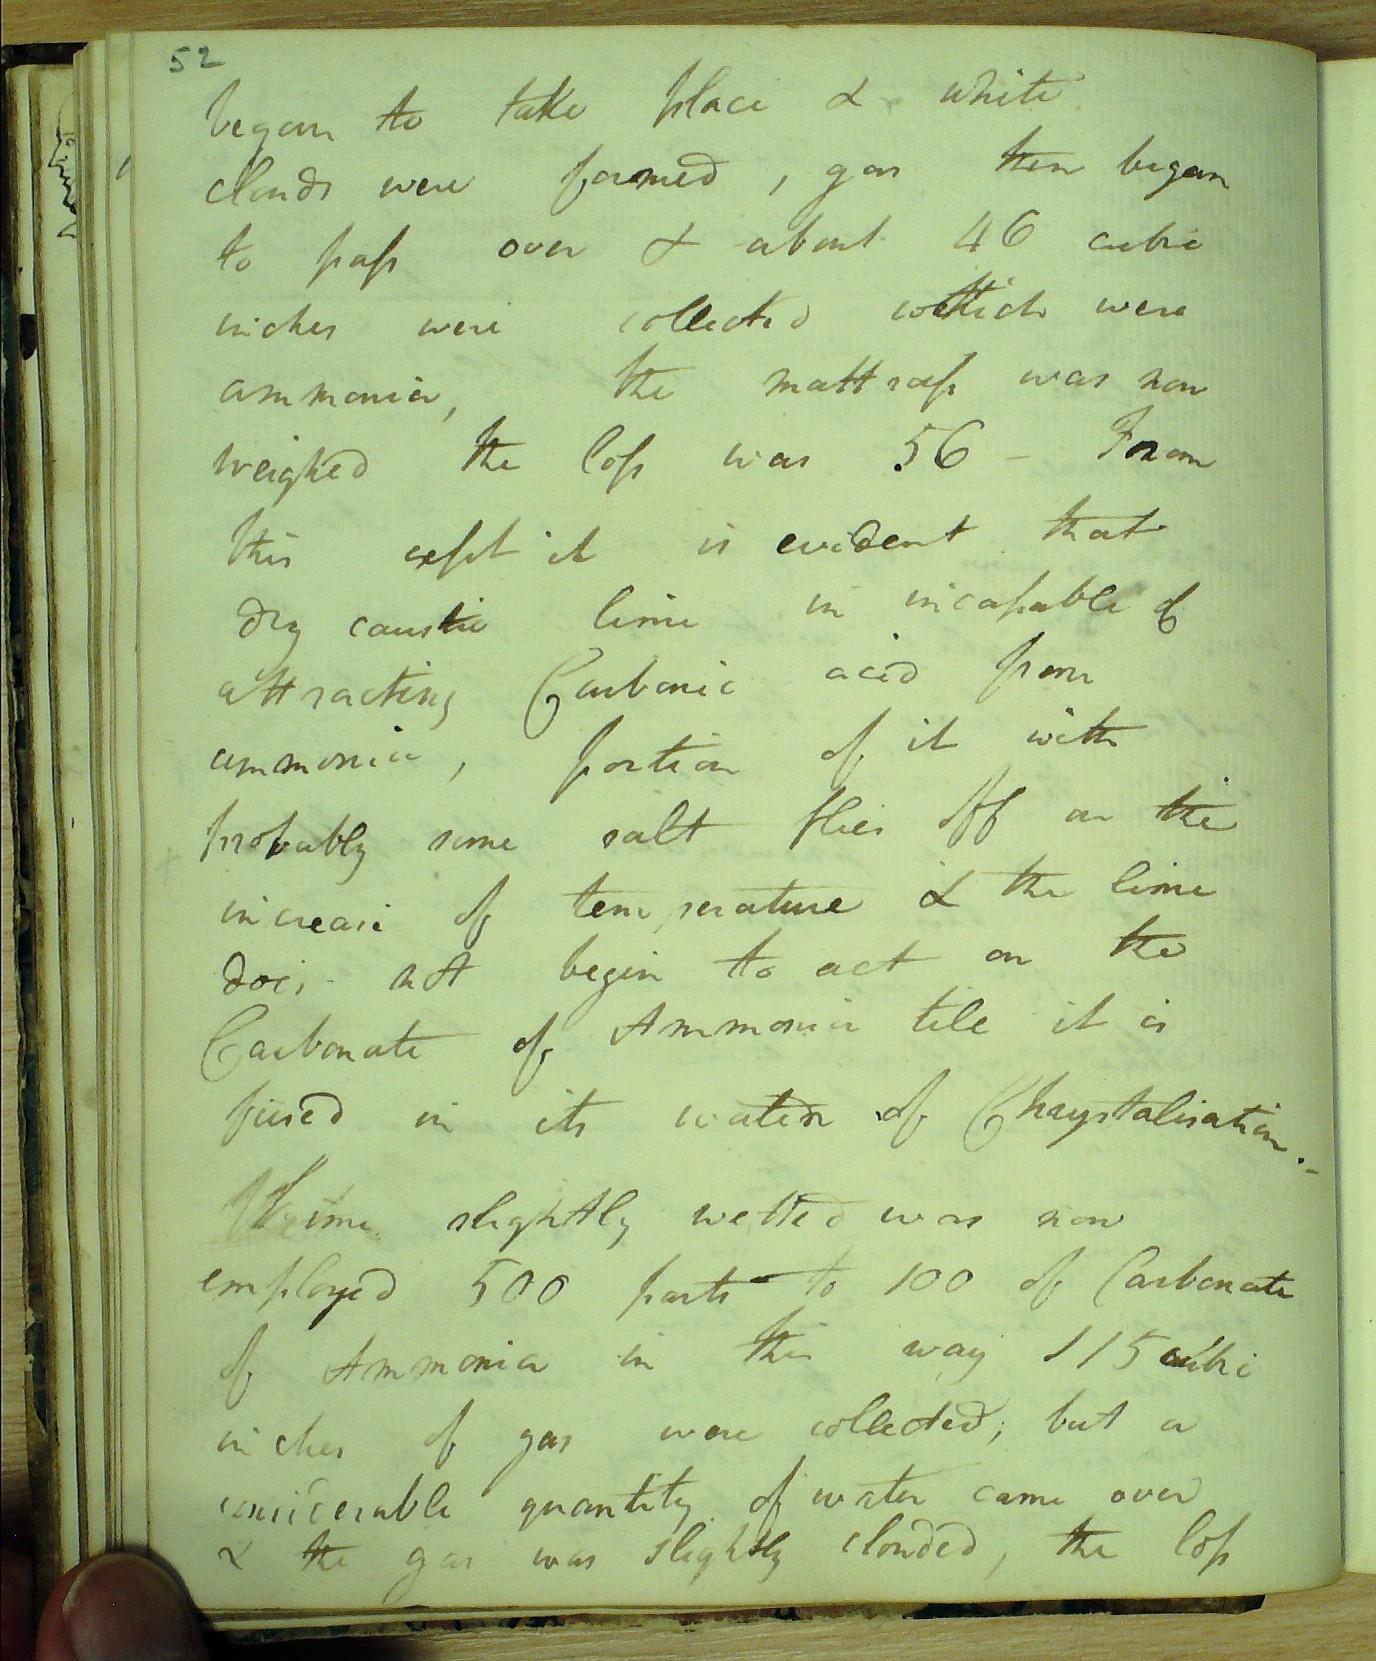 52
began to take place & white
clouds were formed, gas then began
to pass over & about 46 cubic
inches were collected which were
ammonia, the mattrass was now
weighed the loss was 56 - From
this expt it is evident that
dry caustic lime is incapable of
attracting Carbonic acid from
ammonia, portion of it with
probably some salt flies off on the
increase of temperature & the lime
does not begin to act on the
Carbonate of Ammonia tile it is
fused in its water of Chrystalisation.-
Lime slightly wetted was now
employed 500 parts to 100 of Carbonate
of Ammonia in this way 115 cubic
inches of gas were collected; but a
considerable quantity of water came over
& the gas was slightly clouded, the loss